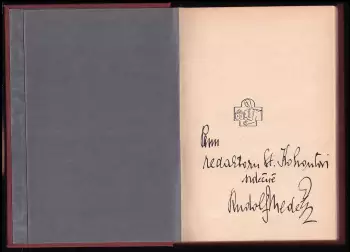 Panu
redaktoru St. Kohoutovi
srdečně
Rudolf Medek